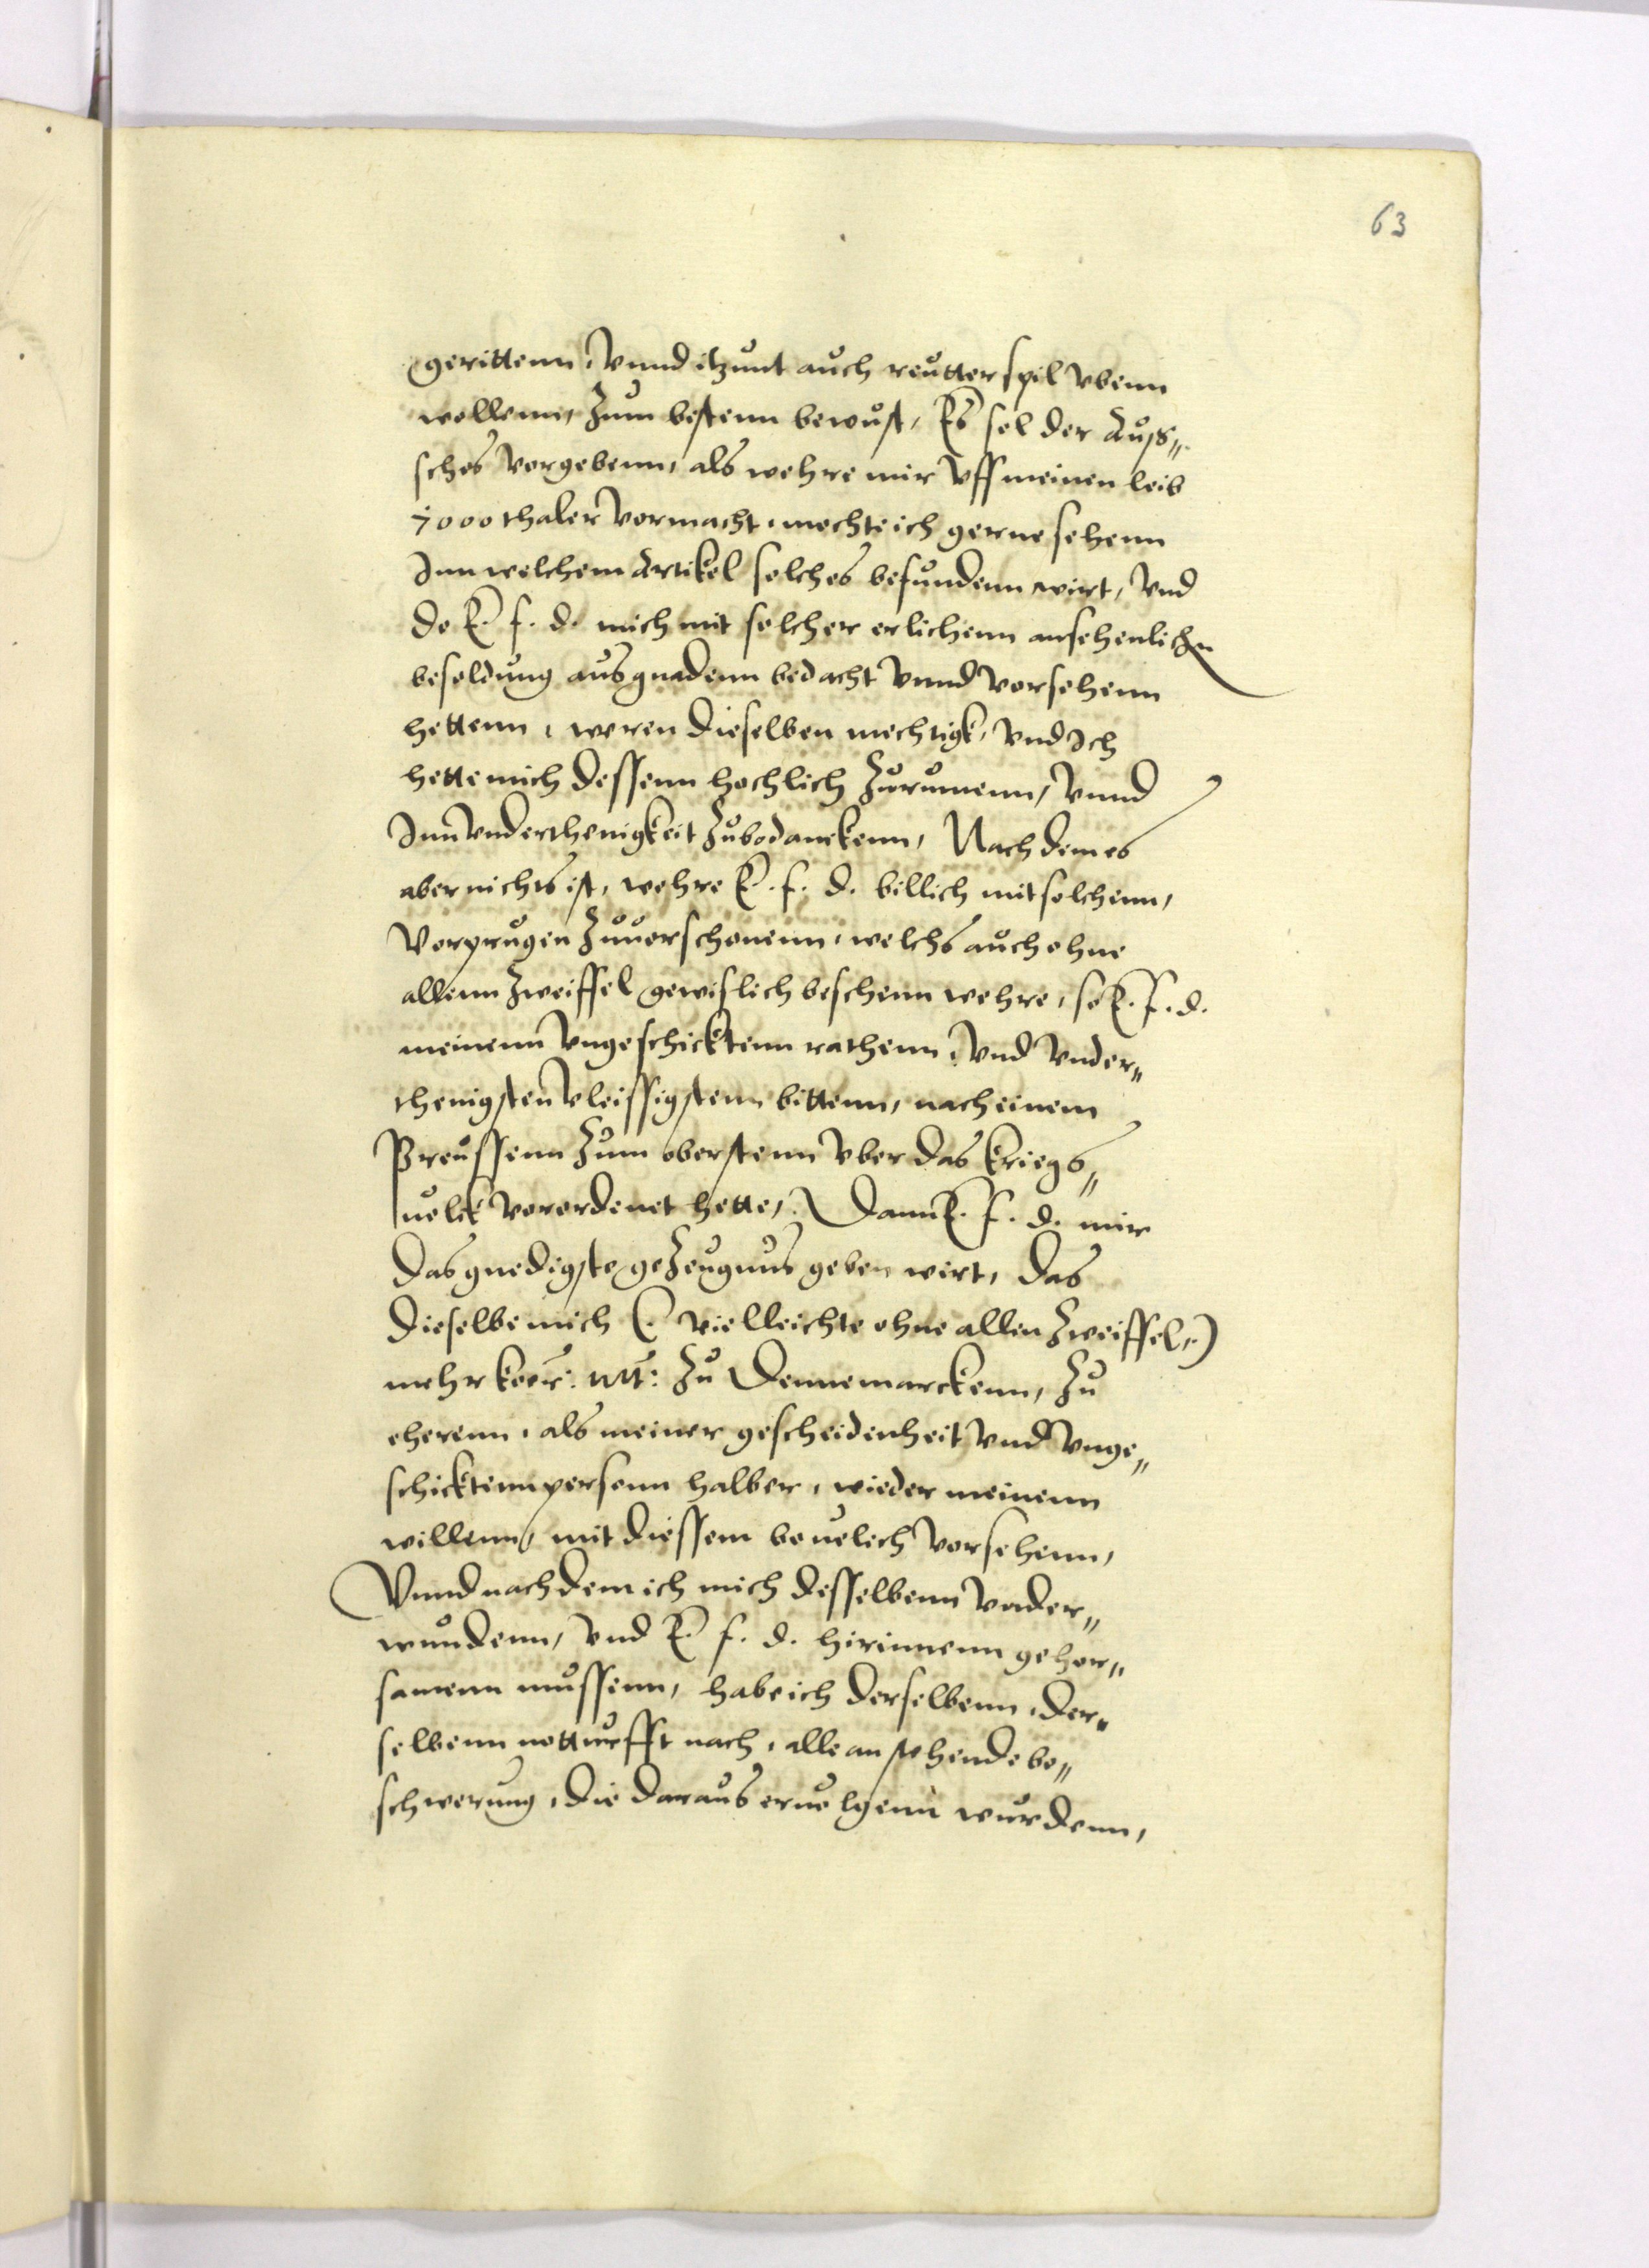 63
gerittenn, Vnnd itzunt auch reutterspil vbenn
wollenn, Zum bestenn bewust, Es sol der Auß„
sches vorgebenn, als wehre mir vff meinen leib
7000 thaler vormacht, mochte ich gerne sehenn
Inn welchem Artikel solches befundenn wirt, Vnd
do E. f. d. mich mit solcher erlichenn ansehenlichen
besoldung aus gnadenn bedacht vnnd vorsehenn
hettenn, weren dieselben mechtigk, Vnd Ich
hette mich dessenn hochlich Zurumenn, Vnnd
Inn Vnderthenigkeit Zubedanckenn, Nach dem es
aber nichts ist, wehre E. f. d. billich mit solchenn,
Vorprugen Zuuorschonenn, welchs auch ohne
allenn Zweiffel gewislich beschenn wehre, so E. f. d.
meinenn Vngeschicktenn rathenn, Vnd Vnder„
thenigsten Vleissigstenn bittenn, nach einem
Preussenn Zum oberstenn Vber das kriegs„
uolck Verordenet hette, Dann E. f. d. mir
das gnedigste geZeugnus geben wirt, das
dieselbe mich (. vielleichte ohne allen Zweiffel.)
mehr koer: Mt: Zu Dennemarckenn, Zu
eherenn, als meiner gescheidenheit vnd Vnge„
schicktenn personn halber, wieder meinenn
willenn, mit diessem beuelich Vorsehenn,
Vnnd nach dem ich mich desselbenn Vnder„
wundenn, Vnd E. f. d. hirinnenn gehor„
samenn mussenn, habe ich derselbenn, der„
selbenn notturfft nach, alle anstehende be„
schwerung, die daraus eruolgenn wurdenn,